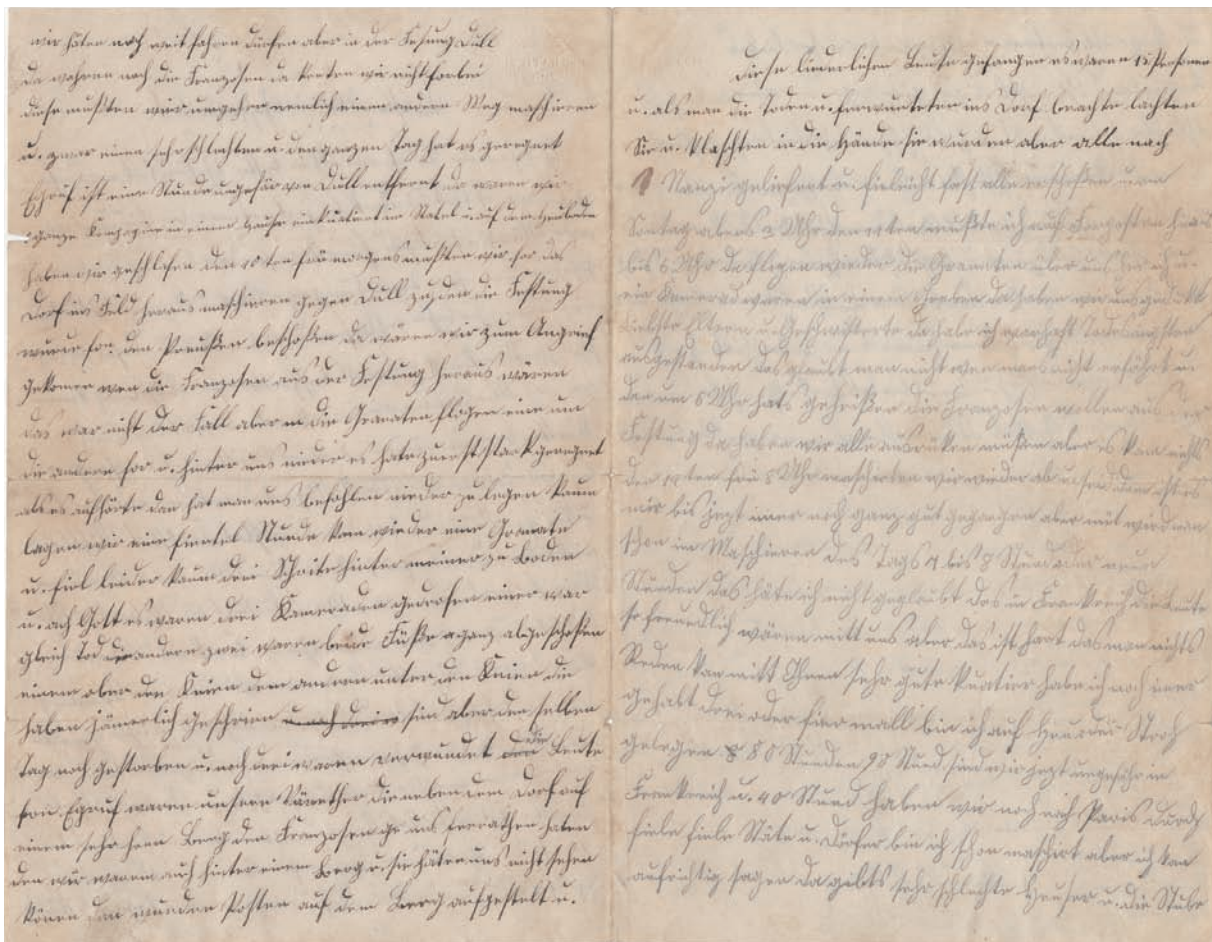 wir häten noch weit fahren dürfen aber in der Festung Dull
da wahren noch die Franzosen da konten wir nicht forbei
diese mußten wir umgehen nemlich einen andern Weg maschieren
u. zwar einen sehr schlechten u. den ganzen Tag hat es geregnet
Egruf ist eine Stunde ungefär von Dull entfernt da waren wir
ganze Kompagnie in einem Hause einkuatiert im Statel u. auf dem Heuboden
haben wir geschlafen den 10 ten früh morgens mußten wir for das
Dorf ins Feld heraus maschieren gegen Dull zu den die Festung
wurde fon den Preußen beschoßen da wären wir zum Angrief
gekomen wen die Franzosen aus der Festung heraus wären
das war nicht der Fall aber die Granaten flogen eine um
die andere for u. hinter uns nieder es hate zuerst stark geregnet
als es aufhörte dan hat man uns befohlen nieder zu legen kaum
lagen wir eine fiertel Stunde kam wieder eine Granate
u. fiel leider kaum drei Schrite hinter meiner zu Boden
u. ach Gott es waren drei Kameraden gedrofen einer war
gleich Tod die andern zwei waren beide Füße ganz abgeschoßen
einem ober den Knien dem andern unter den Knien die
haben jämerlich geschrien sin aber den selben
Tag noch gestorben u. noch drei waren verwundet die Leute
fon Egruf waren unsere Väräther die neben dem Dorf auf
einem sehr hoen Berg den Franzosen uns ferrathen haten
den wir waren auch hinter einem Berg u. sie häten uns nicht sehen
könen dan wurden Posten auf dem Berg aufgestelt u.
diese liederlichen Leute gefangen es waren 15 Personen
u. als man die Toden u. ferwunteten ins Dorf brachte lachten
Sie u. klaschten in die Hände sie wurden aber alle nach
Nanzi geliefert u. fieleicht fast alle erschoßen wen
Sontag abens 2 Uhr den 11ten mußte ich auf Forposten hinaus
bis 6 Uhr da flogen wieder die Granaten über uns her ich u.
ein Kamerad waren in einem Graben da haben wir uns geduckt
Liebste Eltern u. Geschwisterte da habe ich warhaft Todes angsten
ausgestanden das glaubt man nicht wen mans nicht erfährt u.
dan um 8 Uhr hats geheißen die Franzosen wollen aus der
Festung da haben wir alle ausrüken müßen aber es kam nichts
den 12ten früh 8 Uhr maschierten wir wieder ab u. seit dem ist es
mir bis jezt imer noch ganz gut gegangen aber müt wird man
schon im Maschieren des Tags 7 bis 8 Stund oder neun
Stunden das häte ich nicht geglaubt das in Frankreich die Leute
so freundlich wären mitt uns aber das ist hart das man nichts
Reden kan mitt Ihnen sehr gute kuatier habe ich noch imer
gehabt drei oder fier mall bin ich auf Heu oder Stroh
gelegen 80 Stunden 90 Stund sind wir jezt ungefähr in
Frankreich u. 40 Stund haben wir noch nach Paris durch
fiele fiele Stäte u. Dörfer bin ich schon maschirt aber ich kan
aufrichtig sagen da gibts sehr schlechte Heuser u. die Stube